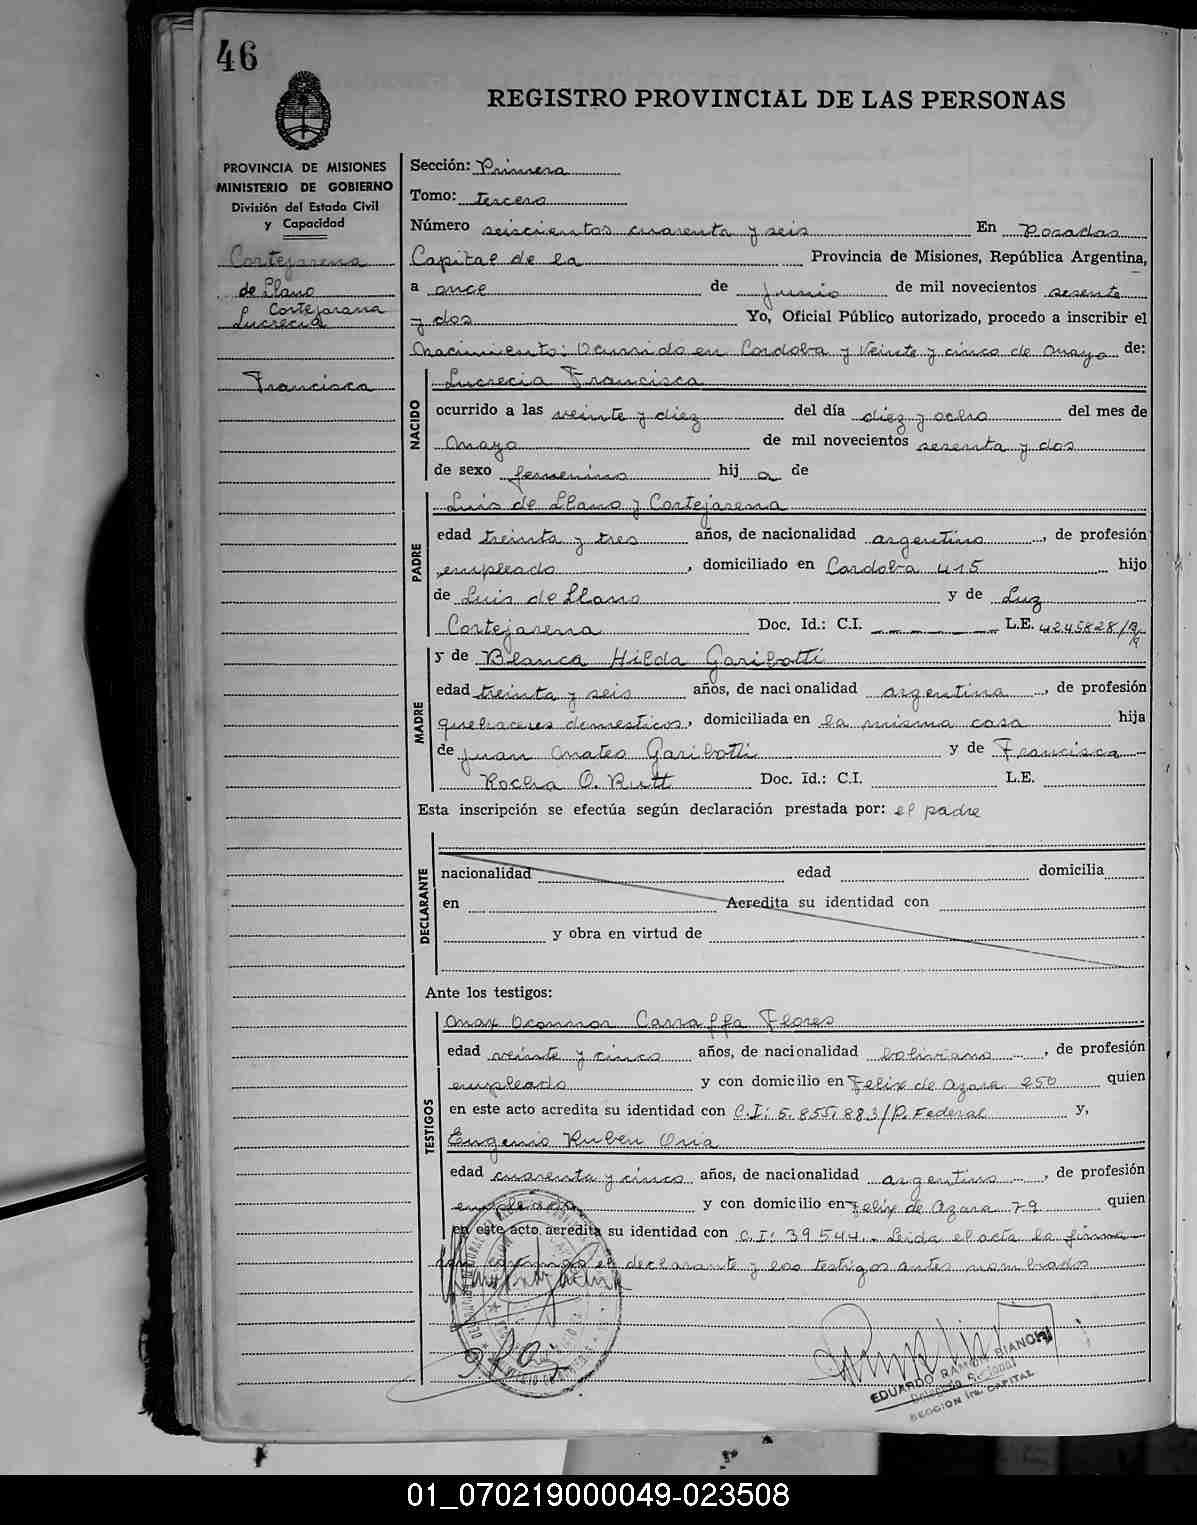 46
REGISTRO PROVINCIAL DE LAS PERSONAS
PROVINCIA DE MISIONES
MINISTERIO DE GOBIERNO
División del Estado Civil
y Capacidad
Cortejarena
de Llano
Cortejarana
Lucrecia
Francisca
Sección: Primera
Tomo: tercero
Número seiscientos cuarenta y seis En Posadas
Capital de la Provincia de Misiones, República Argentina,
a once de junio de mil novecientos sesenta
y dos Yo, Oficial Público autorizado, procedo a inscribir el
Nacimiento: Ocurrido en Cordoba y Veinte y cinco de Mayo de:
NACIDO
Lucrecia Francisca
ocurrido a las veinte y diez del día diez y ocho del mes de
Mayo de mil novecientos sesenta y dos
de sexo femenino hij a de
PADRE
Luis de Llano y Cortejarena
edad treinta y tres años, de nacionalidad argentino, de profesión
empleado, domiciliado en Cordoba 415 hijo
de Luis de Llano y de Luz
Cortejarena Doc. Id.: C.I. L.E. 4245828
MADRE
y de Blanca Hilda Garibotti
edad treinta y seis años, de nacionalidad argentina, de profesión
quehaceres domesticos, domiciliada en la misma casa hija
de Juan Mateo Garibotti y de Francisca
Rocha O. Rutt Doc. Id.: C.I. L.E.
Esta inscripción se efectúa según declaración prestada por: el padre
DECLARANTE
nacionalidad edad domicilia
en Acredita su identidad con
y obra en virtud de
Ante los testigos:
TESTIGOS
Max Oconnor Carraffa Flores
edad veinte y cinco años, de nacionalidad boliviano, de profesión
empleado y con domicilio en Felix de Azara 250 quien
en este acto acredita su identidad con C.I: 5.855.883/P. Federal y,
Eugenio Ruben Oria
edad cuarenta y cinco años, de nacionalidad argentino, de profesión
empleado y con domicilio en Felix de Azara 79 quien
en este acto acredita su identidad con C.I: 39544. Leida el acta la firma
con conmigo el declarante y los testigos antes nombrados
EDUARDO RAMON BIANCHI
Delegado Seccional
SECCION 1ra. CAPITAL
01_070219000049-023508